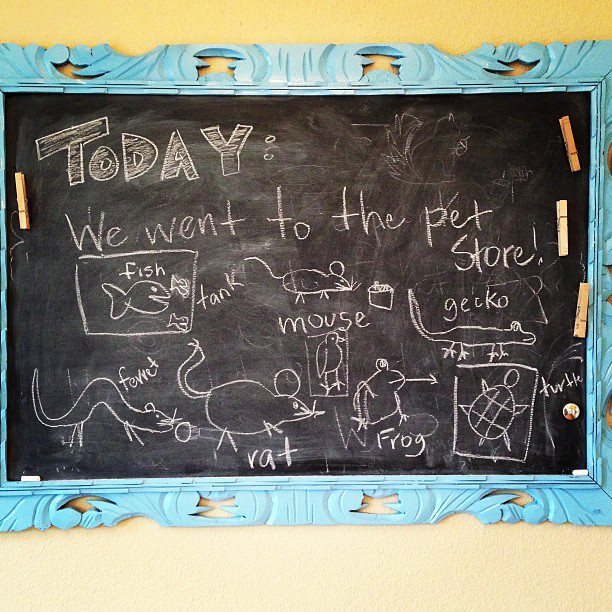 TODAY:
We went to the pet
Store!
fish
tank
mouse
gecko
ferret
rat
Frog
turtle